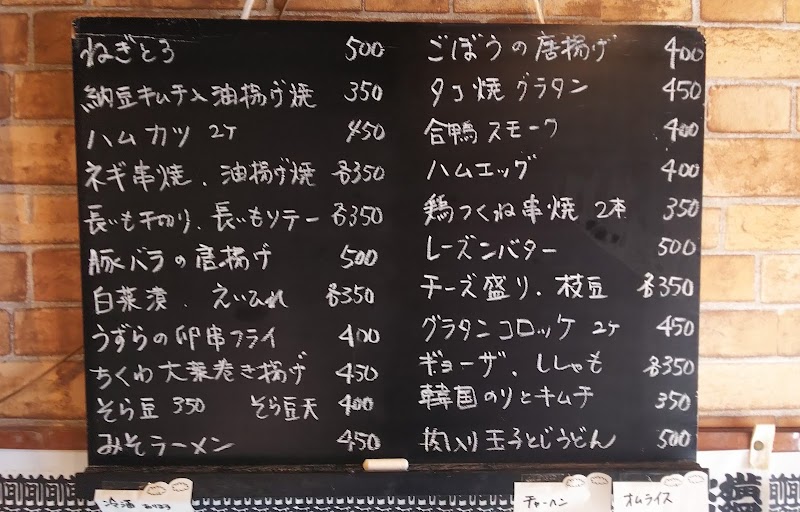 ねぎとろ 500
納豆キムチ入油揚げ焼 350
ハムカツ 2ケ 450
ネギ串焼、油揚げ焼 各350
長いも千切り、長いもソテー 各350
豚バラの唐揚げ 500
白菜漬、えいひれ 各350
うずらの卵串フライ 400
ちくわ大葉巻き揚げ 450
そら豆 350 そら豆天 400
みそラーメン 450
ごぼうの唐揚げ 400
タコ焼グラタン 450
合鴨スモーク 400
ハムエッグ 400
鶏つくね串焼 2本 350
レーズンバター 500
チーズ盛り、枝豆 各350
グラタンコロッケ 2ケ 450
ギョーザ、ししゃも 各350
韓国のりとキムチ 350
肉入り玉子とじうどん 500
冷酒
チャーハン
オムライス